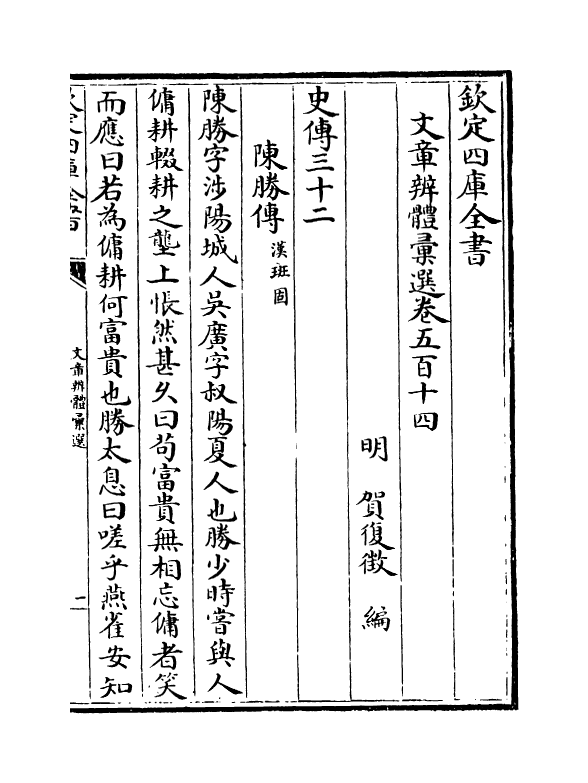 欽定四庫全書
文章辨體彚選卷五百十四
明 賀復徵 編
史傳三十二
陳勝傳 漢班固
陳勝字涉陽城人吳廣字叔陽夏人也勝少時嘗與人
傭耕輟耕之壟上悵然甚久曰茍富貴無相忘傭者笑
而應曰若為傭耕何富貴也勝太息曰嗟乎燕雀安知
欽定四庫全書
文章辨體彚選